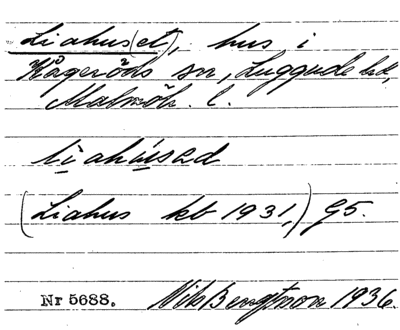 Liahus(et), hus i
Kågeröds sn, Luggude hd,
Malmöh. l.
liahúsəd
(Liahus kb 1931,) G5.
Nr 5688. Nils Bengtsson 1936.